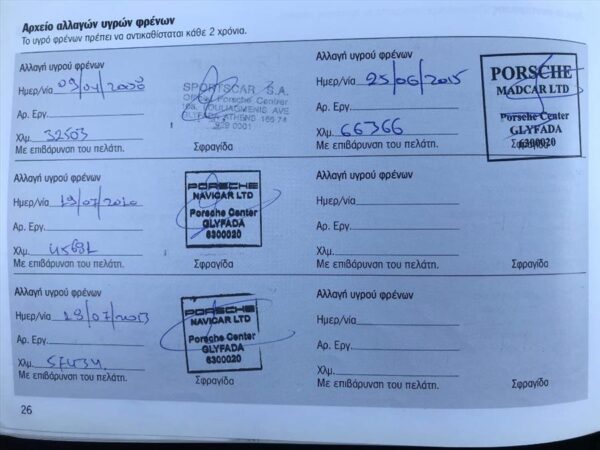 Αρχείο αλλαγών υγρών φρένων
Το υγρό φρένων πρέπει να αντικαθίσταται κάθε 2 χρόνια.
Αλλαγή υγρού φρένων
Ημερ/νία 09/04/2008
Αρ. Εργ.
Χλμ. 32503
Με επιβάρυνση του πελάτη.
SPORTSCAR S.A.
Official Porsche Center
VOULIAGMENIS AVE
GLYFADA ATHENS 166 74
Σφραγίδα
Αλλαγή υγρού φρένων
Ημερ/νία 19/07/2010
Αρ. Εργ.
Χλμ.
Με επιβάρυνση του πελάτη.
PORSCHE
NAVICAR LTD
Porsche Center
GLYFADA
6300020
Σφραγίδα
Αλλαγή υγρού φρένων
Ημερ/νία 29/07/2013
Αρ. Εργ.
Χλμ.
Με επιβάρυνση του πελάτη.
PORSCHE
NAVICAR LTD
Porsche Center
GLYFADA
6300020
Σφραγίδα
26
Αλλαγή υγρού φρένων
Ημερ/νία 25/06/2015
Αρ. Εργ.
Χλμ. 66366
Με επιβάρυνση του πελάτη.
PORSCHE
MADCAR LTD
Porsche Center
GLYFADA
6300020
Σφραγίδα
Αλλαγή υγρού φρένων
Ημερ/νία
Αρ. Εργ.
Χλμ.
Με επιβάρυνση του πελάτη.
Σφραγίδα
Αλλαγή υγρού φρένων
Ημερ/νία
Αρ. Εργ.
Χλμ.
Με επιβάρυνση του πελάτη.
Σφραγίδα